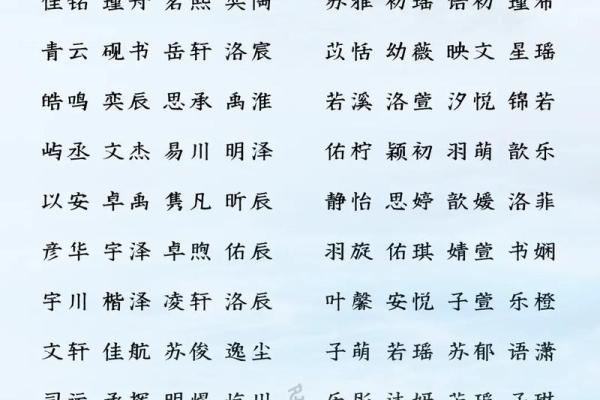 青云 砚书 岳轩 洛宸 苡恬 幼薇 映文 星瑶
皓鸣 奕辰 思承 禹淮 若溪 洛萱 汐悦 锦若
屿丞 文杰 易川 明泽 佑柠 颖初 羽萌 歆乐
以安 卓禹 隽凡 昕辰 静怡 思婷 歆媛 洛菲
彦华 宇泽 卓煦 佑辰 羽旋 佑琪 婧萱 书娴
宇川 楷泽 凌轩 洛辰 叶馨 安悦 子萱 乐橙
文轩 佳航 苏俊 逸尘 子萌 若瑶 苏郁 语潇